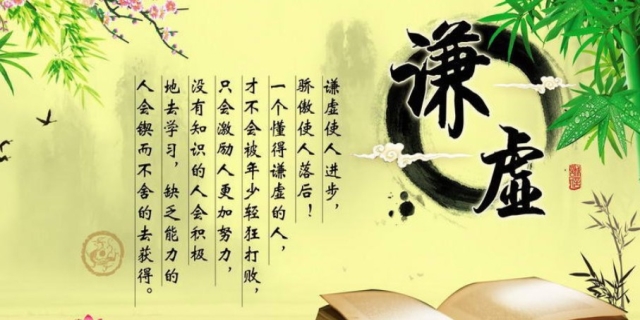 谦虚
谦虚使人进步，
骄傲使人落后！
一个懂得谦虚的人，
才不会被年少轻狂打败，
只会激励人更加努力，
没有知识的人会积极
地去学习，缺乏能力的
人会锲而不舍的去获得。